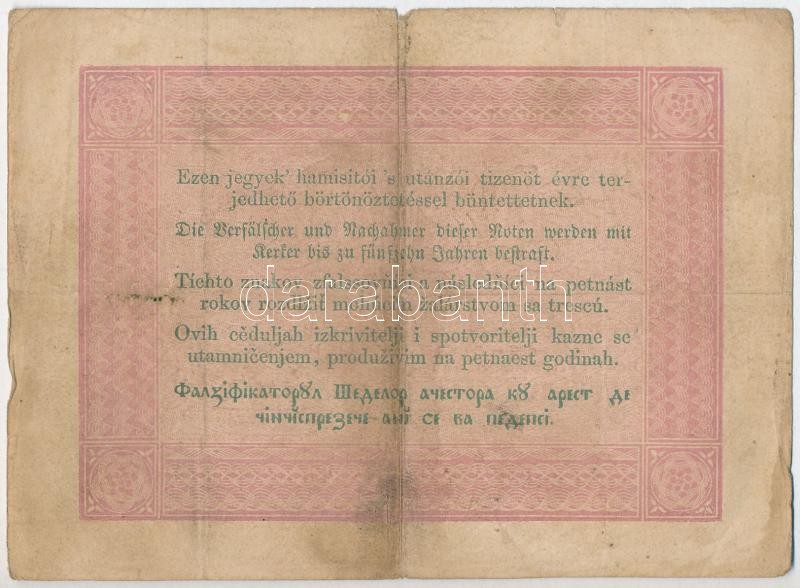 Ezen jegyek' hamisitói 's utánzói tizenöt évre ter-
jedhető börtönöztetéssel büntettetnek.
Die Verfälscher und Nachahmer dieser Noten werden mit
Kerker bis zu fünfzehn Jahren bestraft.
Tíchto znakov na petnást
rokov žalárstvom sa trescú.
darabanth
Ovih cěduljah izkrivitelji i spotvoritelji kazne se
utamničenjem, produživim na petnaest godinah.
Фалзіфікаторꙋл Шеделор ачестора кꙋ арест де
чінчіспрезече ані се ва педепсі.